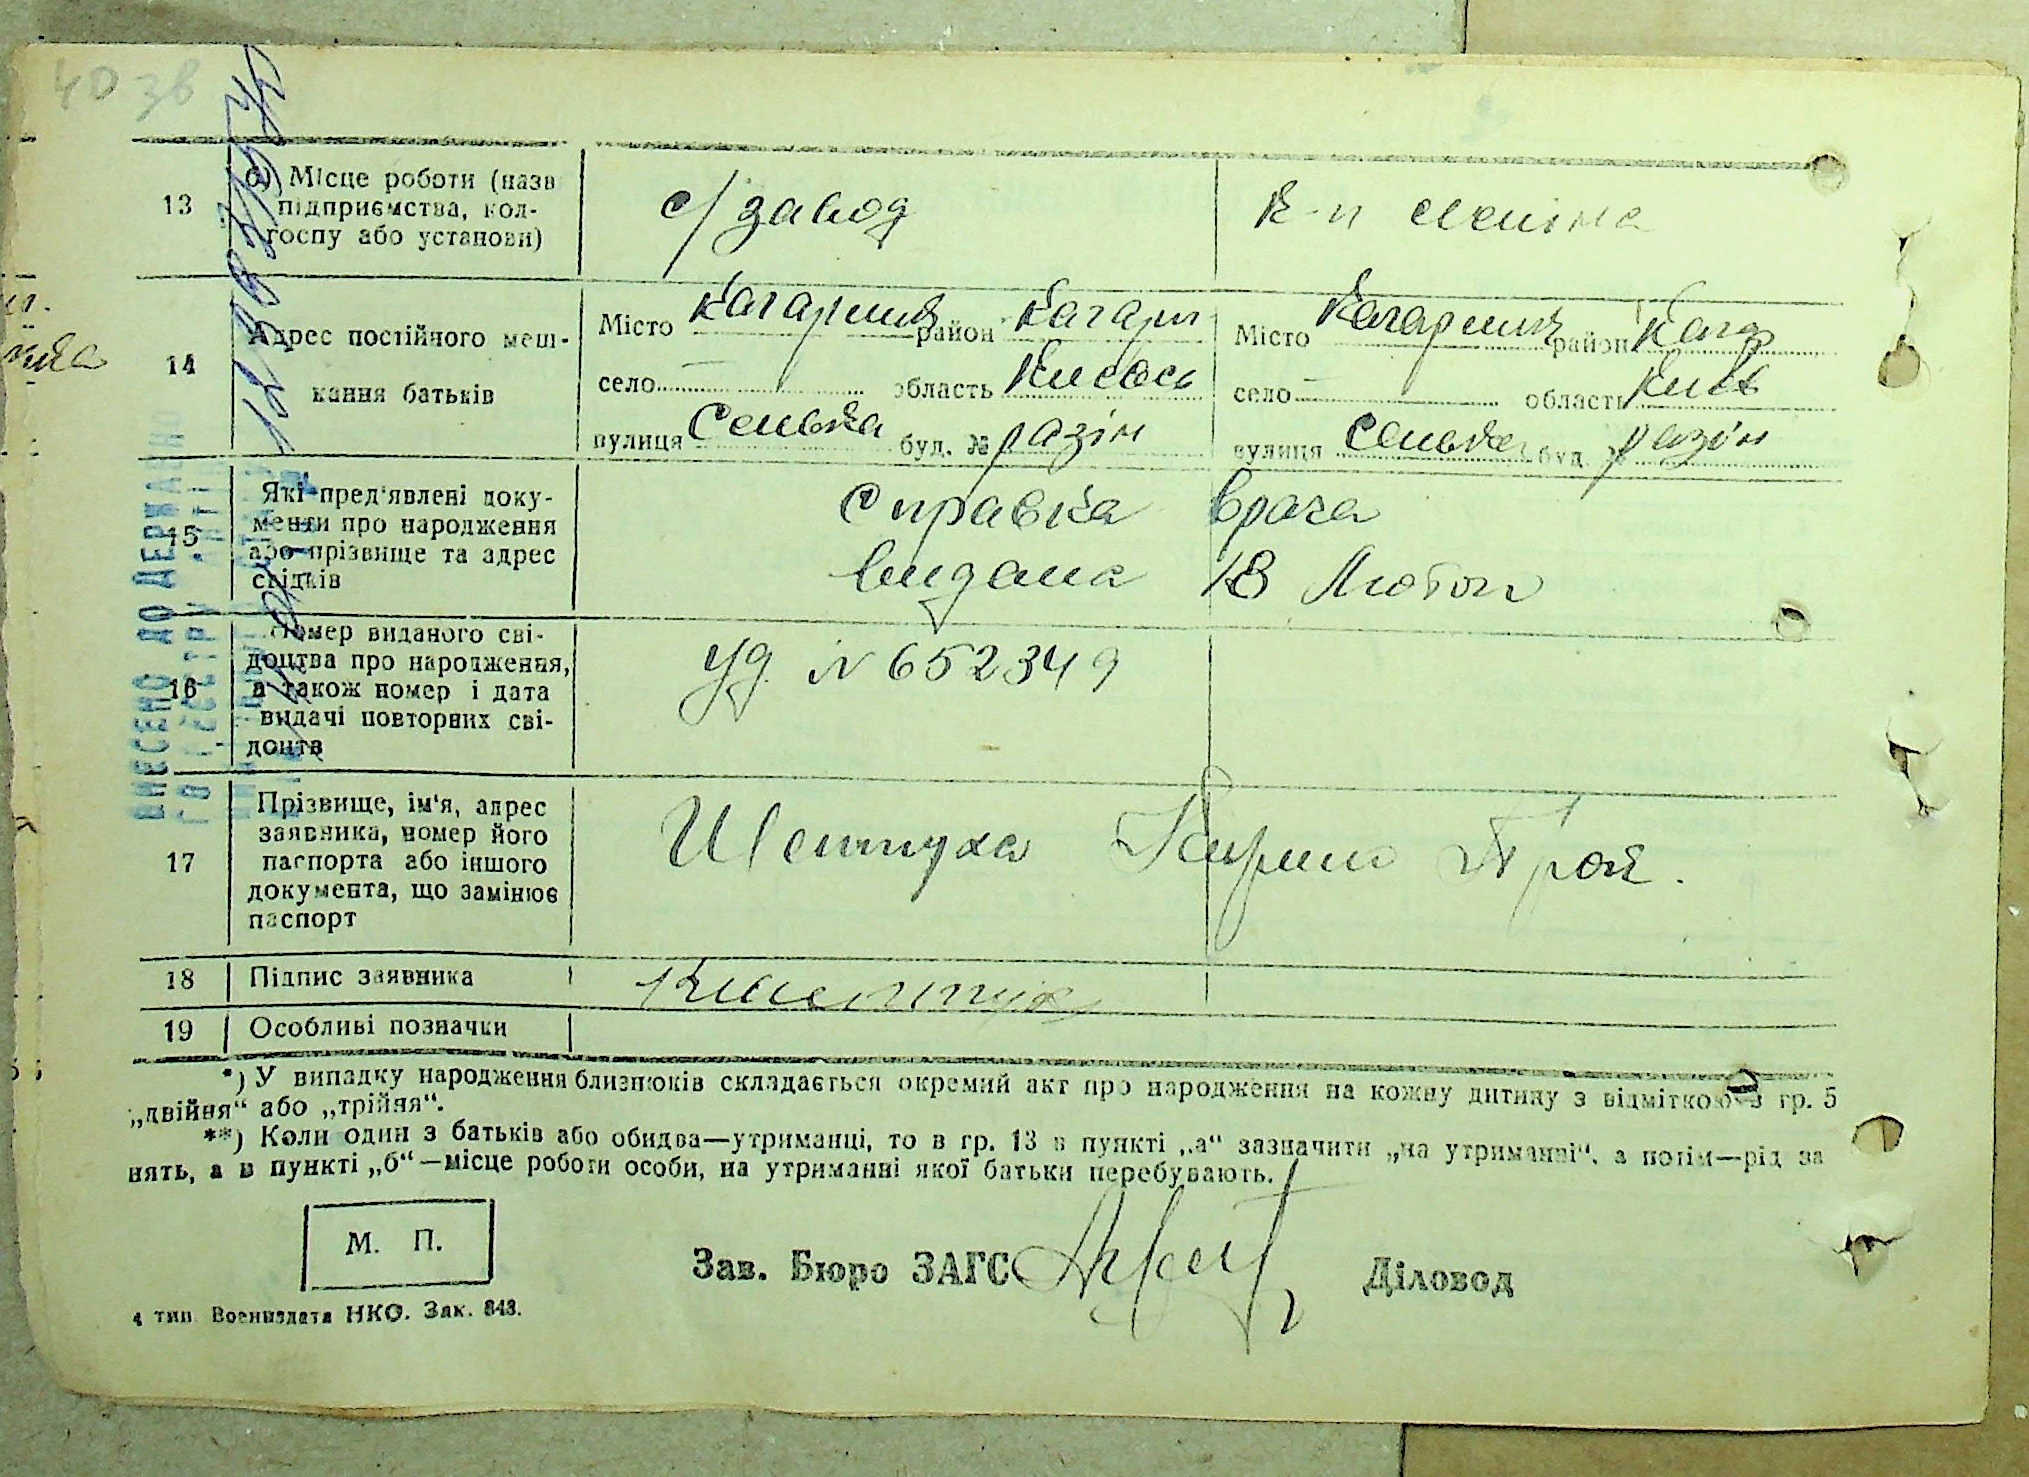 40 зв
13
б) Місце роботи (назв
підприємства, кол-
госпу або установи)
с/завод
к-п
14
Адрес постійного меш-
кання батьків
Місто Кагарлик район Кагарл
село — область Київськ
вулиця Сенька буд. № разін
Місто Кагарлик район Кагар
село — область Київ
вулиця Сенька буд. № разін
15
Які пред'явлені доку-
менти про народження
або прізвище та адрес
свідків
Справка врача
видана 18 Лютого
16
Номер виданого сві-
доцтва про народження,
а також номер і дата
видачі повторних сві-
доцтв
Уд. № 652349
17
Прізвище, ім'я, адрес
заявника, номер його
паспорта або іншого
документа, що замінює
паспорт
Шептуха Кирило
18
Підпис заявника
КШептуха
19
Особливі позначки
*) У випадку народження близнюків складається окремий акт про народження на кожну дитину з відміткою в гр. 5
„двійня“ або „трійня“.
**) Коли один з батьків або обидва—утриманці, то в гр. 13 в пункті „а“ зазначити „на утриманні“, а потім—рід за
нять, а в пункті „б“—місце роботи особи, на утриманні якої батьки перебувають.
М. П.
Зав. Бюро ЗАГС
Діловод
4 тип. Воениздата НКО. Зак. 843.
ВНЕСЕНО ДО ДЕРЖАВНО
ГО РЕЄСТРУ